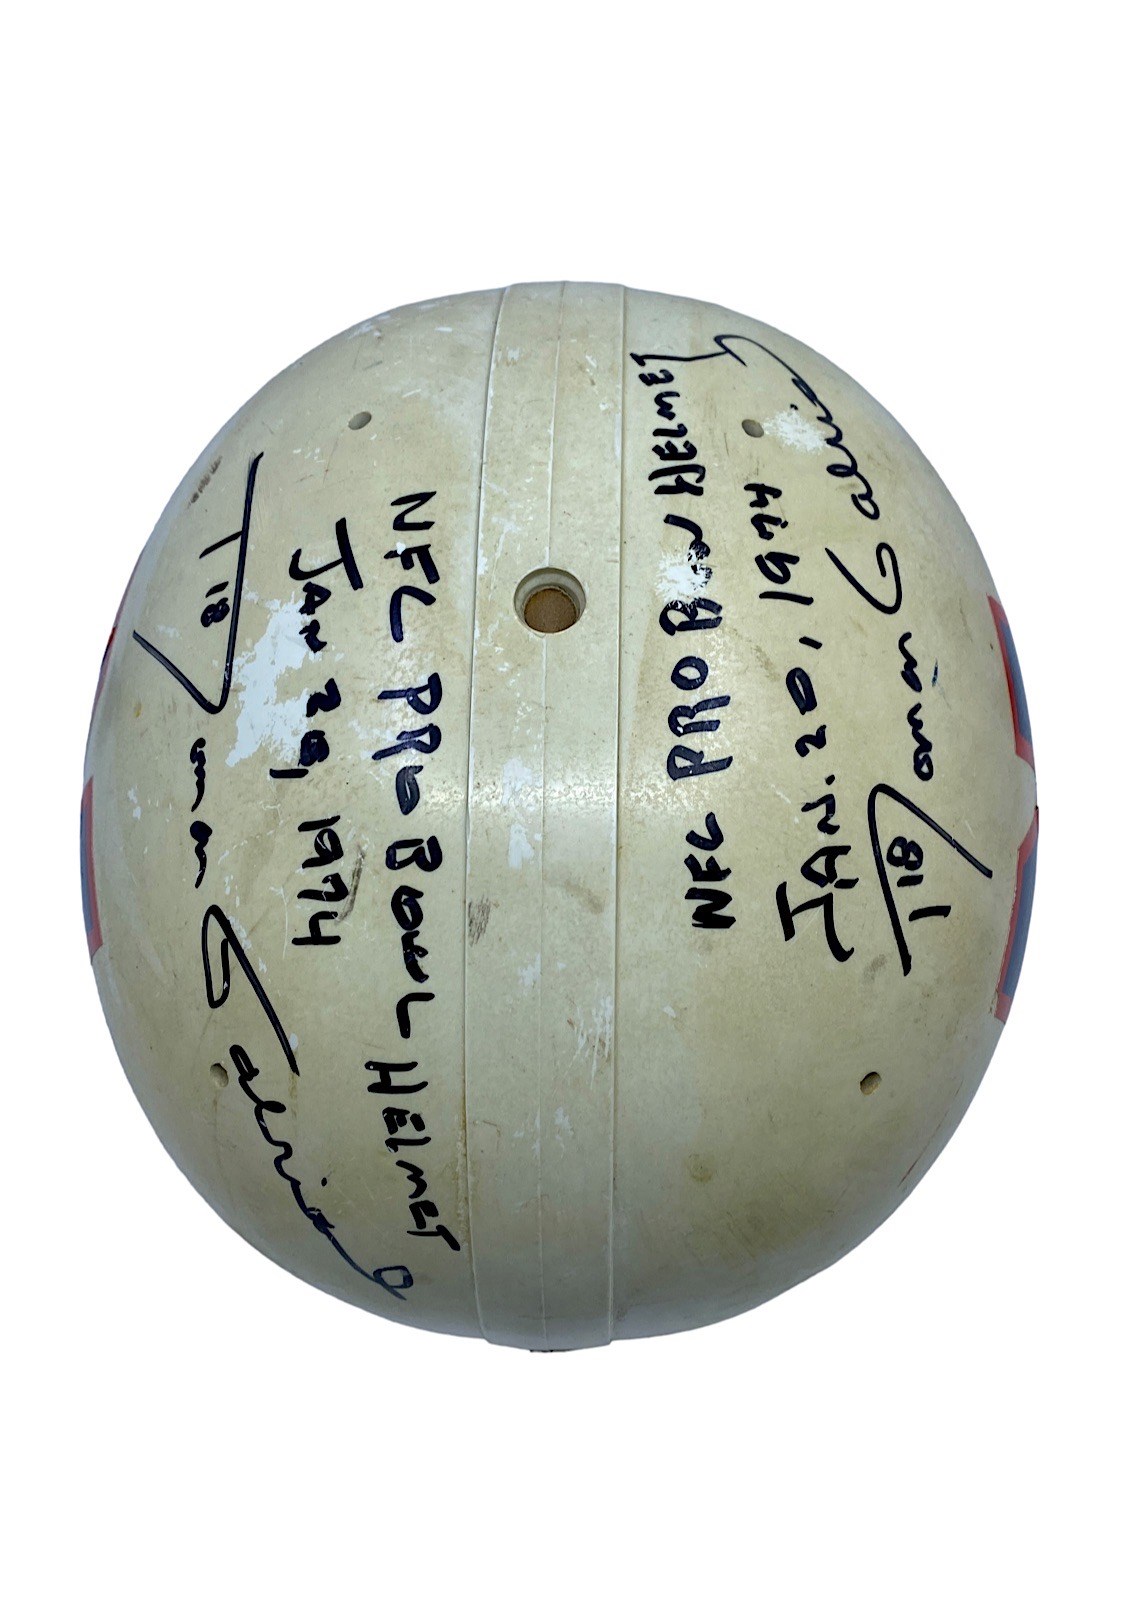 NFC PRO BOWL HELMET
JAN 20, 1974
Roman Gabriel
18
NFC PRO BOWL HELMET
JAN. 20, 1974
Roman Gabriel
18